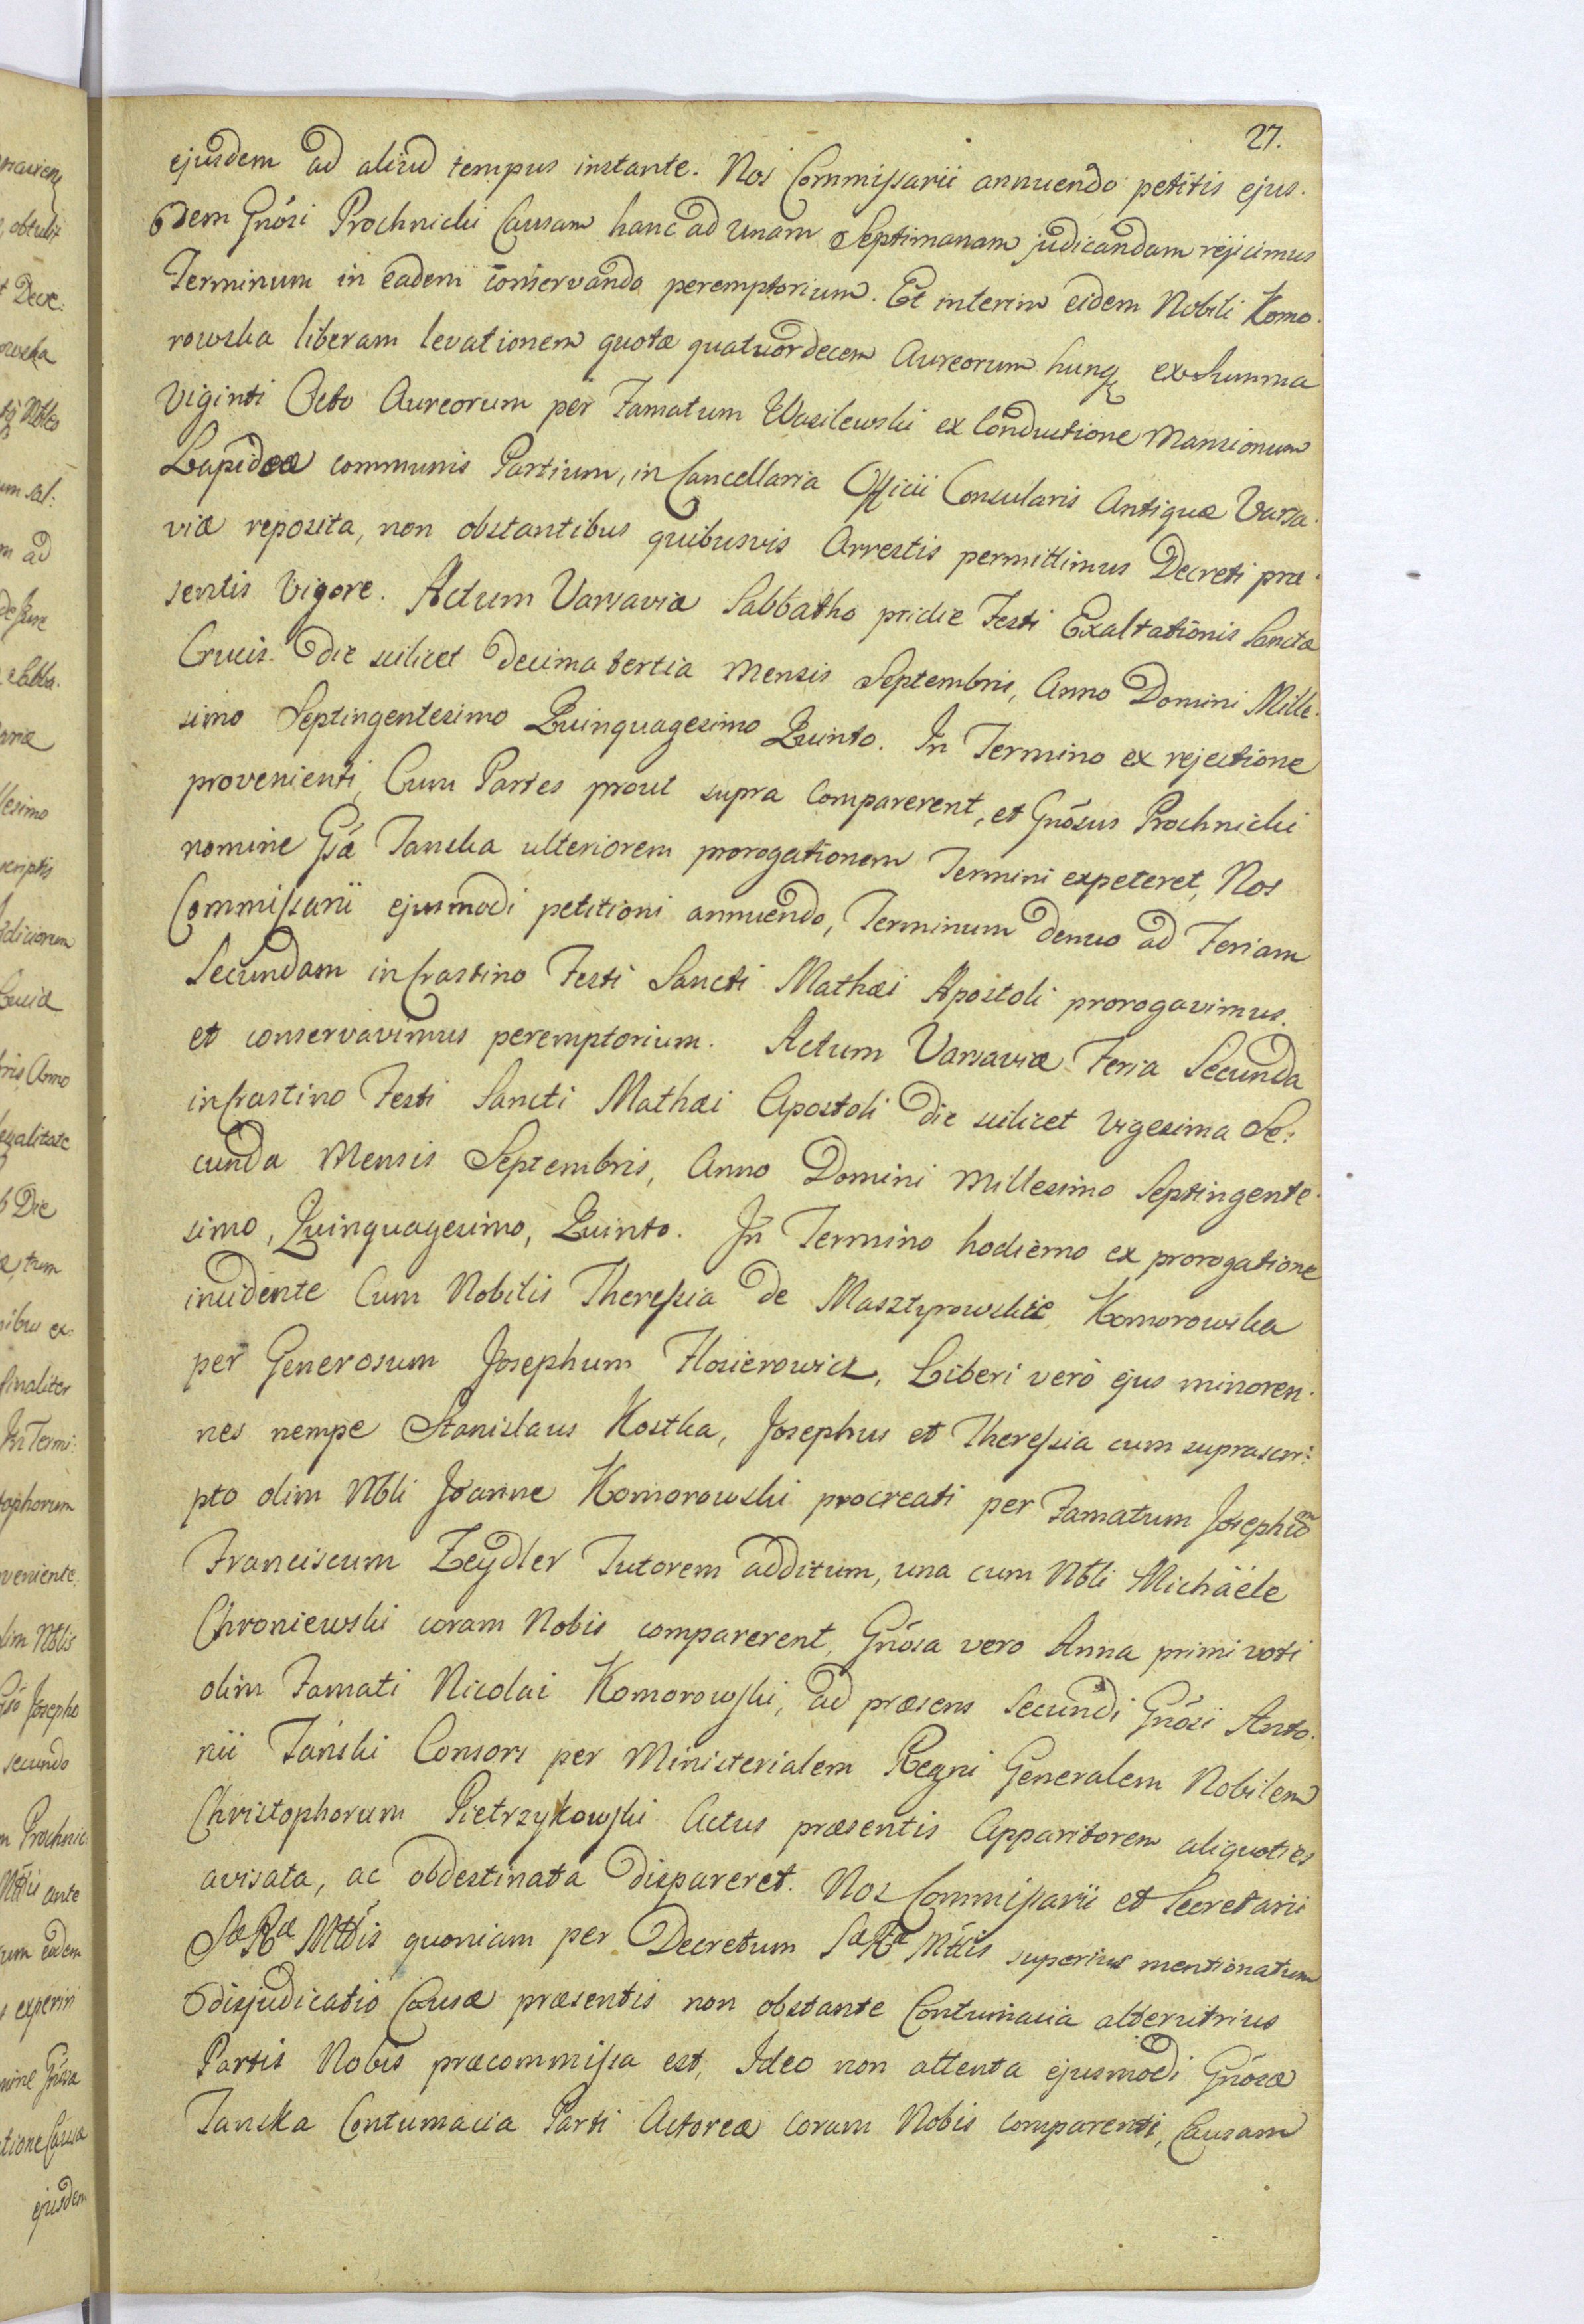 27.
ejusdem ad aliud tempus instante. Nos Commissarii annuendo petitis ejus.
dem Gnõsi Prochnicki Causam hanc ad unam Septimanam judicandam rejicimus
Terminum in eadem conservando peremptorium. Et interim eidem Nobili Komo.
rowska liberam levationem quotæ quatuordecem Aureorum hung ex Summa
Viginti Octo Aureorum per Famatum Wasilewski ex Conductione Mansionum
Lapideæ communis Partium, in Cancellaria Officii Consularis Antiquæ Varsa.
viæ reposita, non obstantibus quibusvis Arrestis permittimus Decreti præ.
sentis Vigore. Actum Varsaviæ Sabbatho pridie Festi Exaltationis Sanctæ
Crucis. die scilicet Decima tertia Mensis Septembris, Anno Domini Mille.
simo Septingentesimo Quinquagesimo Quinto. In Termino ex rejectione
provenienti, Cum Partes prout supra Comparerent, et Gnõsus Prochnicki
nomine Gsæ Tanska ulteriorem prorogationem Termini expeteret, Nos
Commissarii ejusmodi petitioni annuendo, Terminum denuo ad Feriam
Secundam in Crastino Festi Sancti Mathæi Apostoli prorogavimus.
et conservavimus peremptorium. Actum Varsaviæ Feria Secunda
in Crastino Festi Sancti Mathæi Apostoli die scilicet Vigesima Se:
cunda Mensis Septembris, Anno Domini Millesimo Septingente.
simo, Quinquagesimo, Quinto. In Termino hodierno ex prorogatione
incidente Cum Nobilis Theressia de Masztyrowskie Komorowska
per Generosum Josephum Flosierowicz, Liberi verò ejus minoren.
nes nempe Stanislaus Kostka, Josephus et Theressia cum suprascri:
pto olim Nbli Joanne Komorowski procreati per Famatum Josephũm
Franciscum Zeydler Tutorem additum, una cum Nbli Michäele
Chroniewski coram Nobis comparerent, Gnõsa vero Anna primi voti
olim Famati Nicolai Komorowski, ad præsens Secundi Gnõsi Anto.
nii Tański Consors per Ministerialem Regni Generalem Nobilem
Christophorum Pietrzykowski Actus præsentis Apparitorem aliquoties
avisata, ac obdestinata dispareret. Nos Commissarii et Secretarii
Sæ Ræ Mttis quoniam per Decretum Sæ Ræ Mttis superius mentionatum
disjudicatio Causæ præsentis non obstante Contumacia alterutrius
Partis Nobis præcommissa est, Ideo non attenta ejusmodi Gnõsæ
Tancka Contumacia Parti Actoreæ Coram Nobis Comparenti, Causam